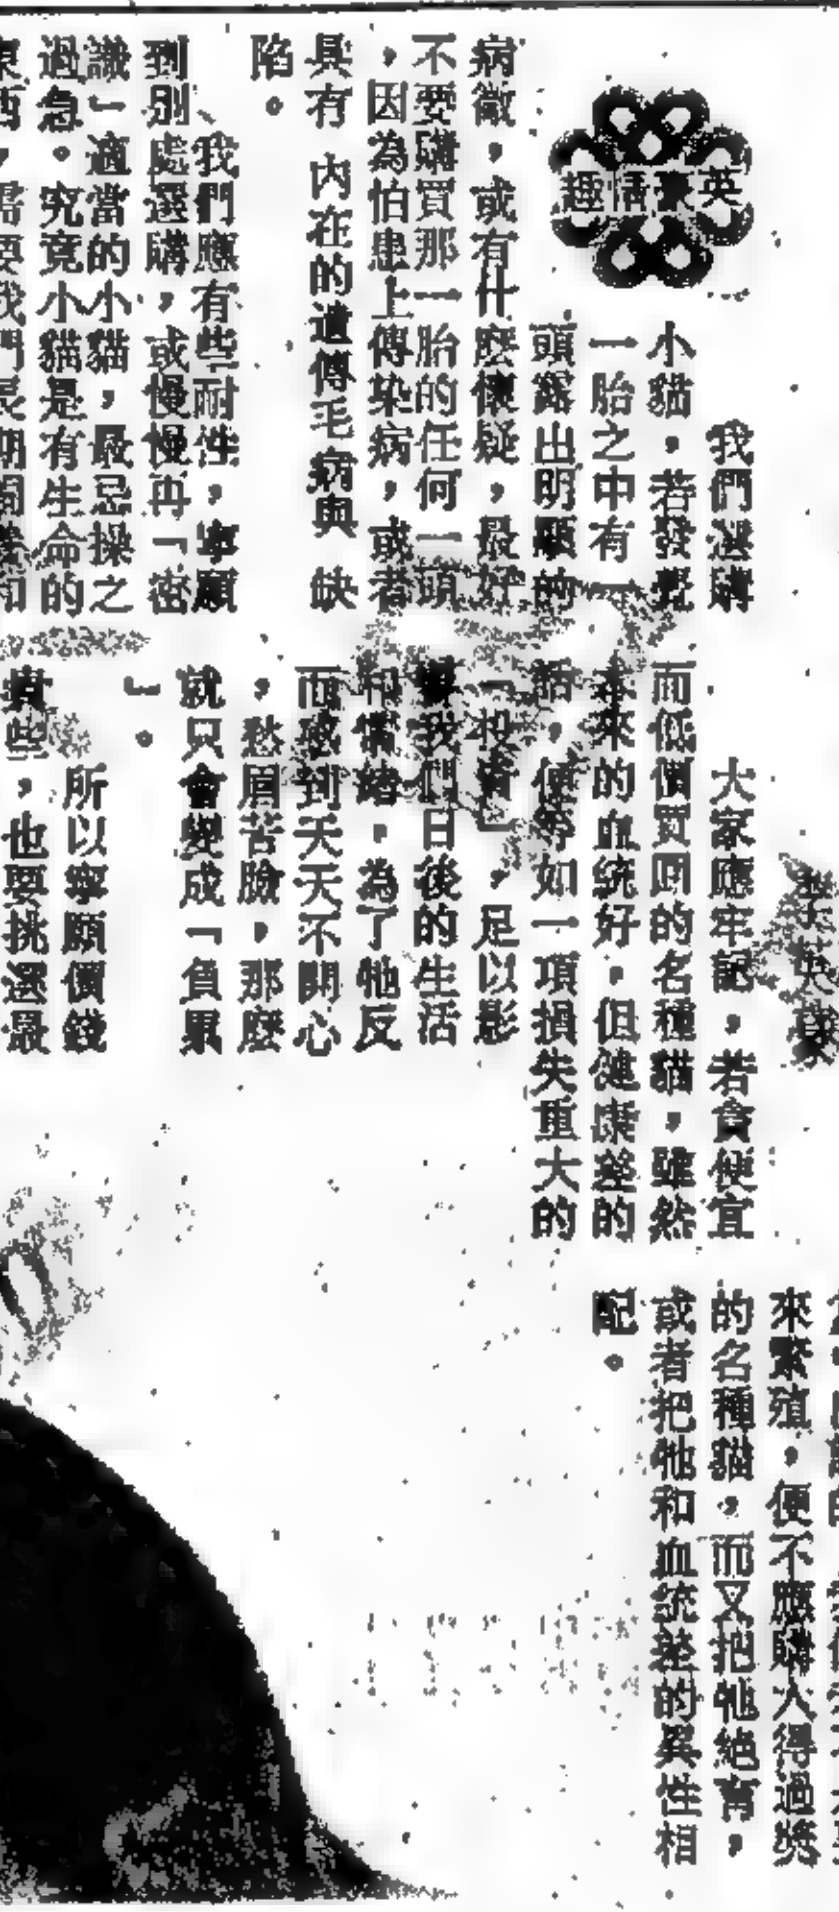 英豪情趣
李英豪
我們選購
小貓，若發覺
一胎之中有一
頭露出明顯的
病徵，或有什麼懷疑，最好
不要購買那一胎的任何一頭
，因為怕患上傳染病，或者
具有內在的遺傳毛病與缺
陷。
我們應有些耐性，寧願
到別處選購，或慢慢再「密
識」適當的小貓，最忌操之
過急。究竟小貓是有生命的
東西，需要我們長期
大家應牢記，若貪便宜
而低價買回的名種貓，雖然
本來的血統好，但健康差的
話，便等如一項損失重大的
「投資」，足以影
響我們日後的生活
和情緒。為了牠反
而感到天天不開心
，愁眉苦臉，那麼
就只會變成「負累
」。
所以寧願價錢
貴些，也要挑選最
來繁殖，便不應購入得過獎
的名種貓，而又把牠絕育，
或者把牠和血統差的異性相
配。